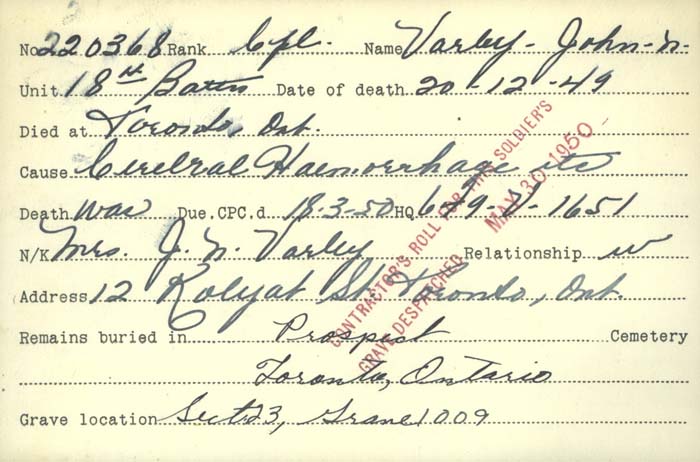 No. 220368 Rank Cpl. Name Varley - John - N.
Unit 18th Battn Date of death 20-12-49
Died at Toronto, Ont.
Cause Cerebral Haemorrhage etc
Death was Due. CPC.d 18-3-50 HQ 649-V-1651
N/K Mrs. J. N. Varley Relationship w
Address 12 Kolyat St. Toronto, Ont.
Remains buried in Prospect Cemetery
Toronto, Ontario
Grave location Sect 23, Grave 1009
CONTRACTOR'S ROLL FOR THIS SOLDIER'S
GRAVE DESPATCHED MAY 30 1950